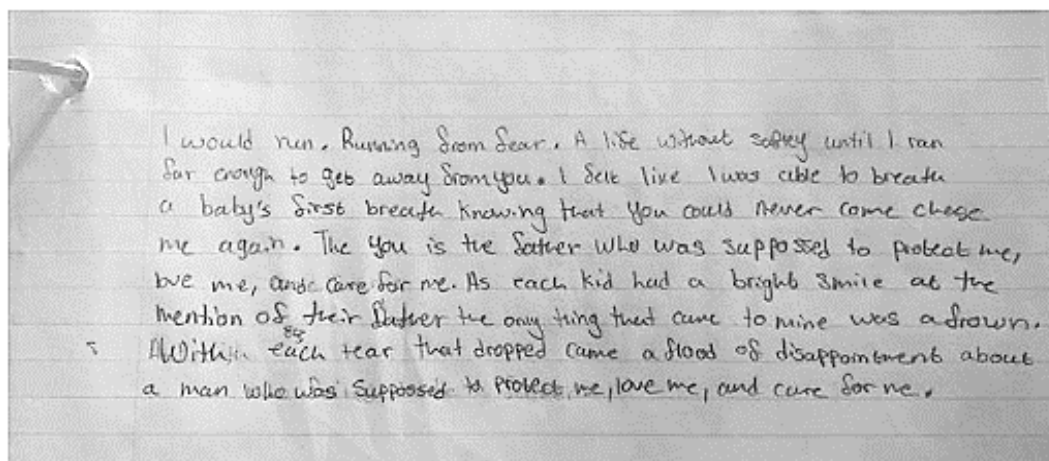 I would run. Running from fear. A life without saftey until I ran
far enough to get away from you. I felt like I was able to breath
a baby's first breath knowing that you could never come chase
me again. The you is the father who was supposed to protect me,
love me, and care for me. As each kid had a bright smile at the
mention of their father the only thing that came to mine was a frown.
With each tear that dropped came a flood of disappointment about
a man who was supposed to protect me, love me, and care for me.